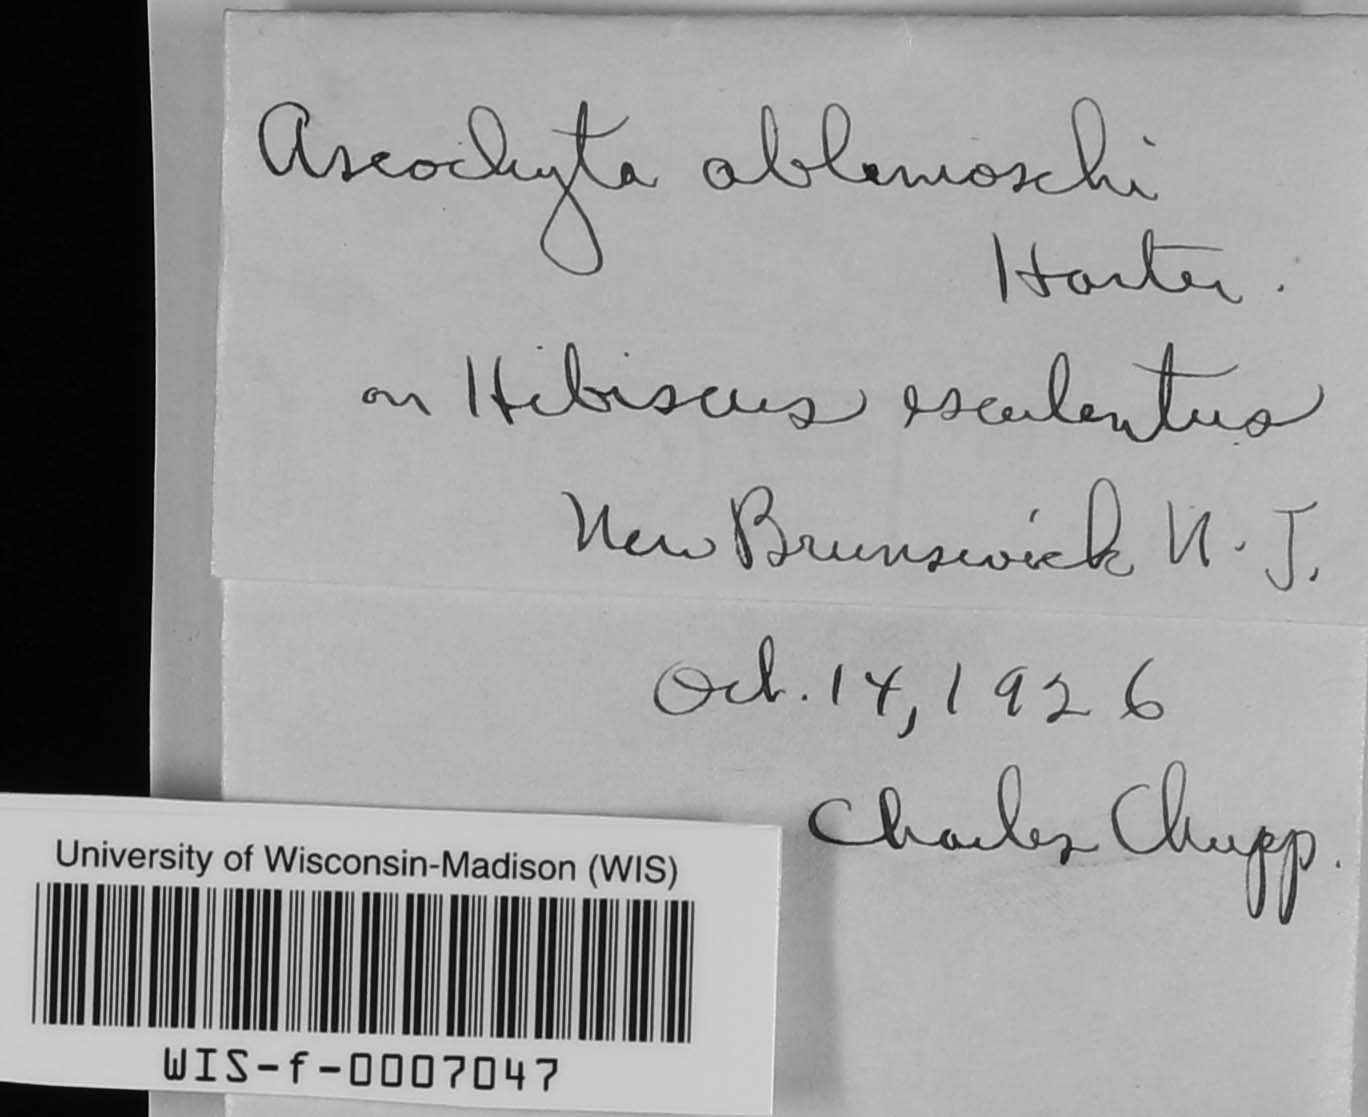 Ascochyta ablemoschi
Harter.
on Hibiscus esculentus
New Brunswick N. J.
Oct. 14, 1926
Charles Chupp.
University of Wisconsin-Madison (WIS)
WIS-f-0007047